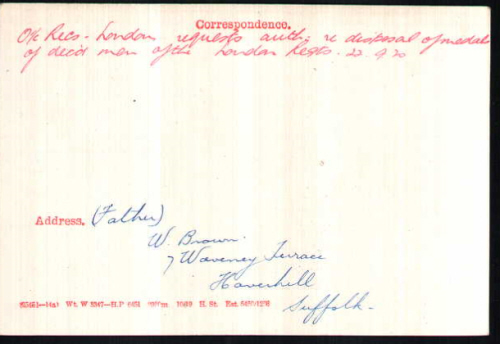 Correspondence.
O/c Recs. London requests auth: re disposal of medals
of dec'd men of the London Regts. 22.9.20
Address. (Father)
W. Brown.
7 Waveney Terrace
Haverhill
Suffolk.
Wt. W H.P. H. St.